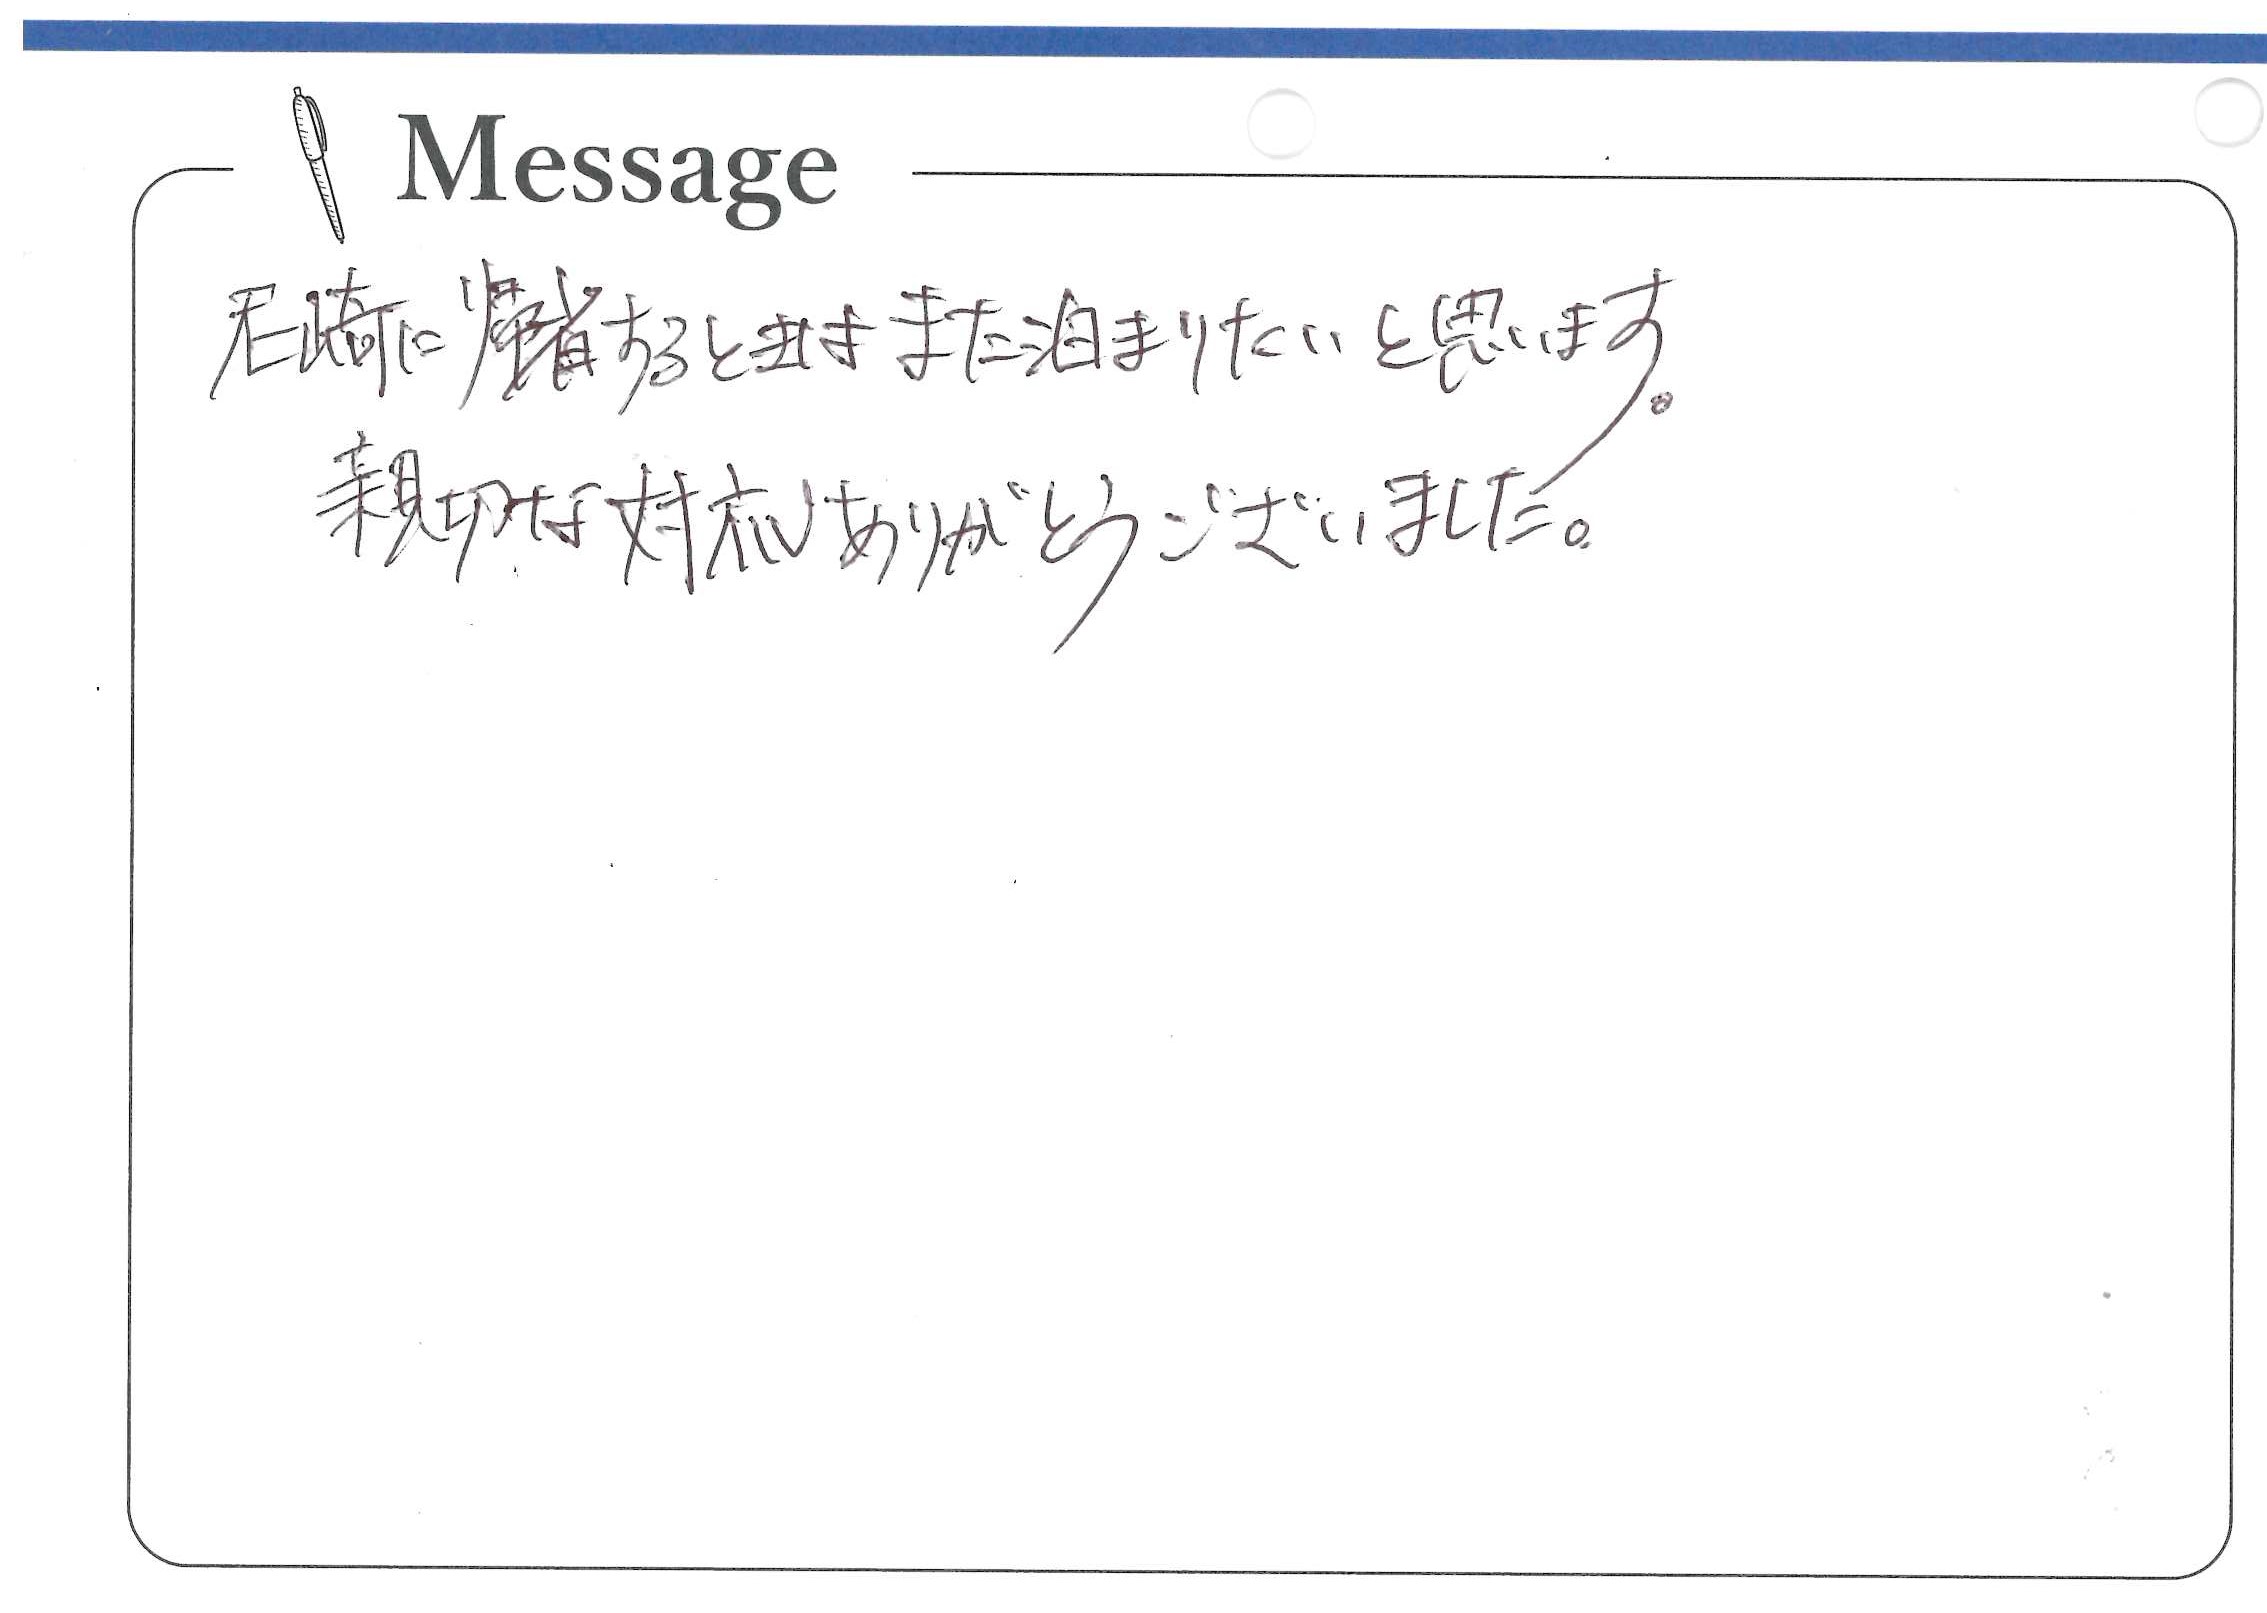 Message
尼崎に帰省するときはまた泊まりたいと思います。
親切な対応ありがとうございました。